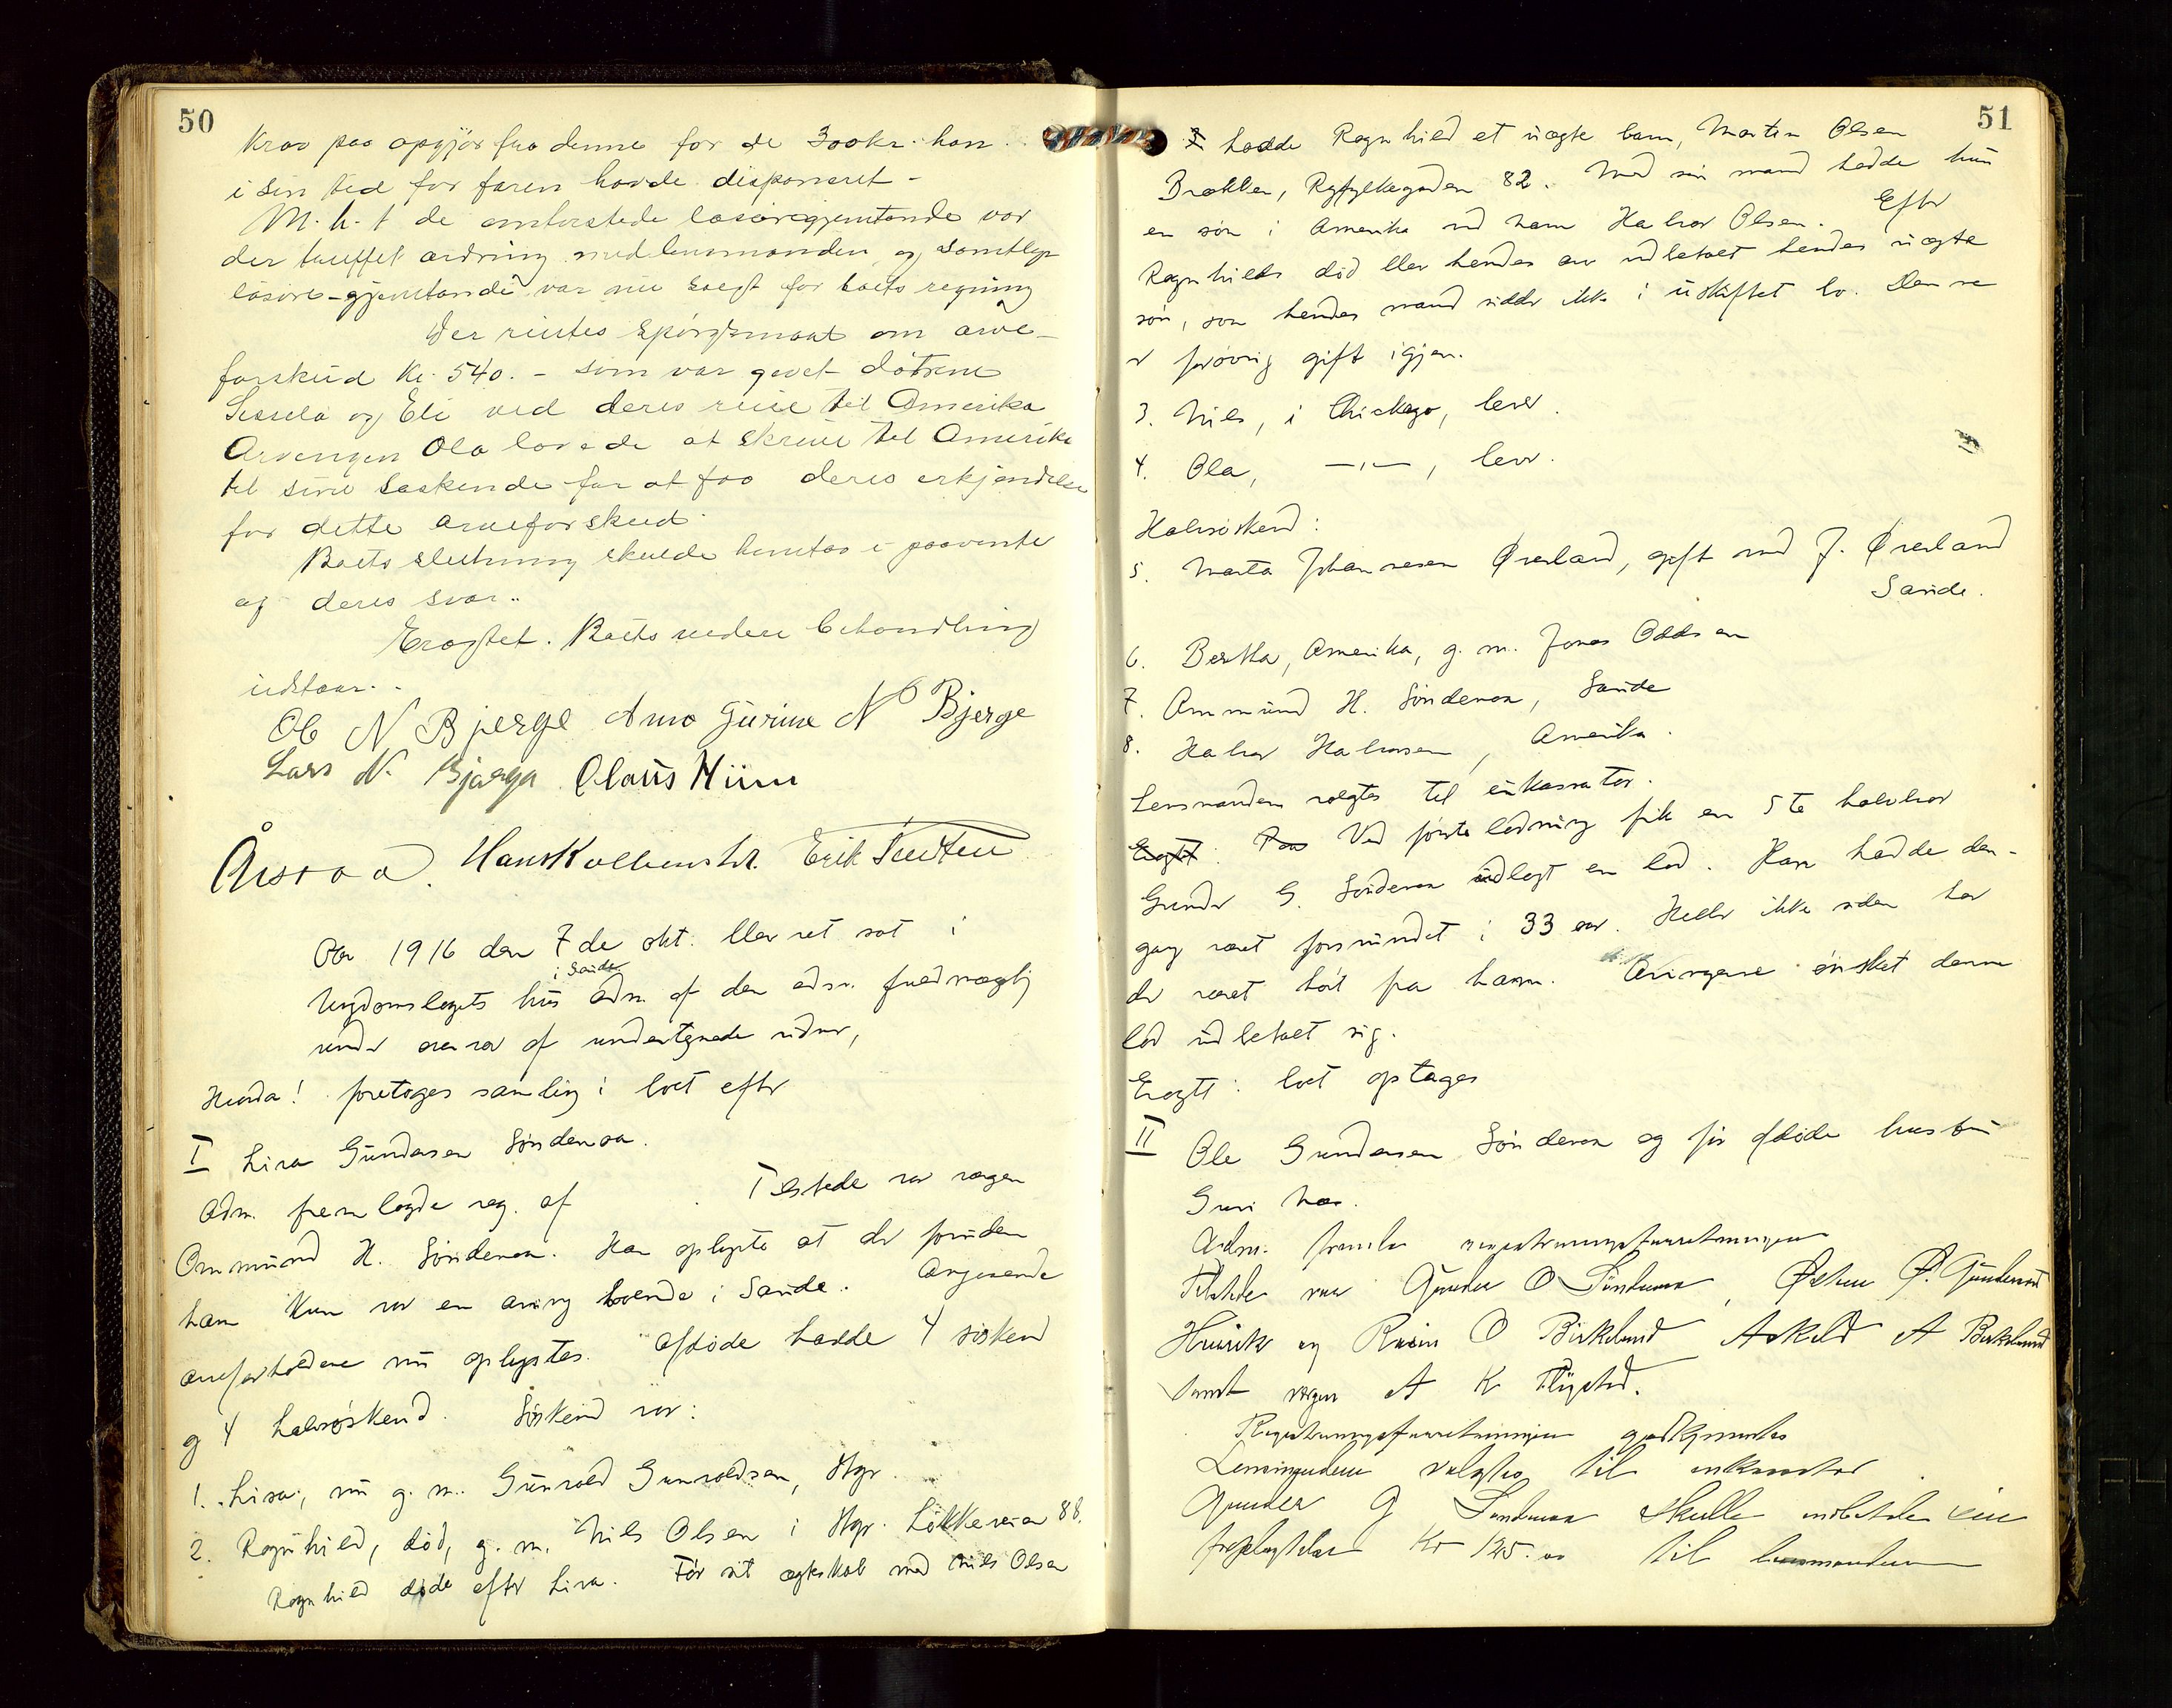 50
Krav paa opgjör fra denne for de 300 kr. han
i sin tid for faren havde disponeret -
M. h. t de omtvistede lösöregjenstande var
der truffet ordning med lensmanden og samtlige
lösöre-gjenstande var nu solgt for boets regning
Der reistes spörgsmaal om arve-
forskud kr. 540.- som var givet døtrene
Sissela og Eli ved deres reise til Amerika
Arvingen Ola lovede at skrive til Amerika
til sine søskende for at faa deres erkjendelse
for dette arveforskud.
Boets slutning skulde berotas i paavente
af deres svar.
Eragtet. Boets videre behandling
udstaar.
Ole N Bjerge Ana Gurine N Bjerge
Lars N. Bjerga Olaus Hiim
Hans Kolbenstvt. Erik Tveten
Aar 1916 den 7de okt. blev ret sat i
i Sande
Ungdomslagets hus adm. af den adm. fuldmægtig
under overvær af undertegnede vidner,
Hvorda! foretoges samling i boet efter
I Lisa Gundersen Søndenaa.
Adm. fremlagde reg. af Tilstede var vergen
Ommund H. Søndenaa. Han oplyste at der foruden
ham kun var en arving boende i Sande. Angaaende
arveforholdene nu oplystes. Afdøde hadde 4 søskend
og 4 halvsøskend. Søskend var:
1. Lisa, nu g. m. Gunvald Gunvaldsen, Stgr.
2. Ragnhild, død, g. m. Nils Olsen i Stgr. Løkkeveien 88.
Ragnhild døde efter Lisa. Før sit egteskab med Nils Olsen
51
hadde Ragnhild et uægte barn, Martin Olsen
Brekken, Ryfylkegaden 82. Med sin mand hadde hun
en søn i Amerika ved navn Halvor Olsen. Efter
Ragnhilds død blev hendes arv udbetalt hendes uægte
søn, som hendes mand sidder ikke i uskiftet bo. Denne
er forøvrig gift igjen.
3. Nils, i Chickago, lever.
4. Ola, —„—, lever.
Halvsøskend:
5. Marta Johannesen Øverland, gift med J. Øverland
Sande.
6. Bertha, Amerika, g. m. Jonas Oddsen
7. Ommund H. Søndenaa, Sande
8. Halvor Halvorsen, Amerika.
Lensmanden valgtes til inkassator.
Eragtet: Ved første lodning fik en 5te halvbror
Gunder G. Søndenaa udlagt en lod. Han hadde den-
gang været forsvundet i 33 aar. Heller ikke siden har
der været hørt fra ham. Arvingene ønsket denne
lod udbetalt sig.
Eragtet: boet optages
II Ole Gundersen Søndenaa og før afdøde hustru
Guri
Adm. fremla registreringsforretningen
Tilstede var Gunder O Søndenaa, Østen Ø. Gundersen
Henrik og Rasm O Birkeland Askild A Birkeland
samt vergen A K Flystad.
Registreringsforretningen godkjendtes
Lensmanden valgtes til inkassator.
Gunder G Søndenaa skulle indbetale sin
kr 125.00 til lensmanden